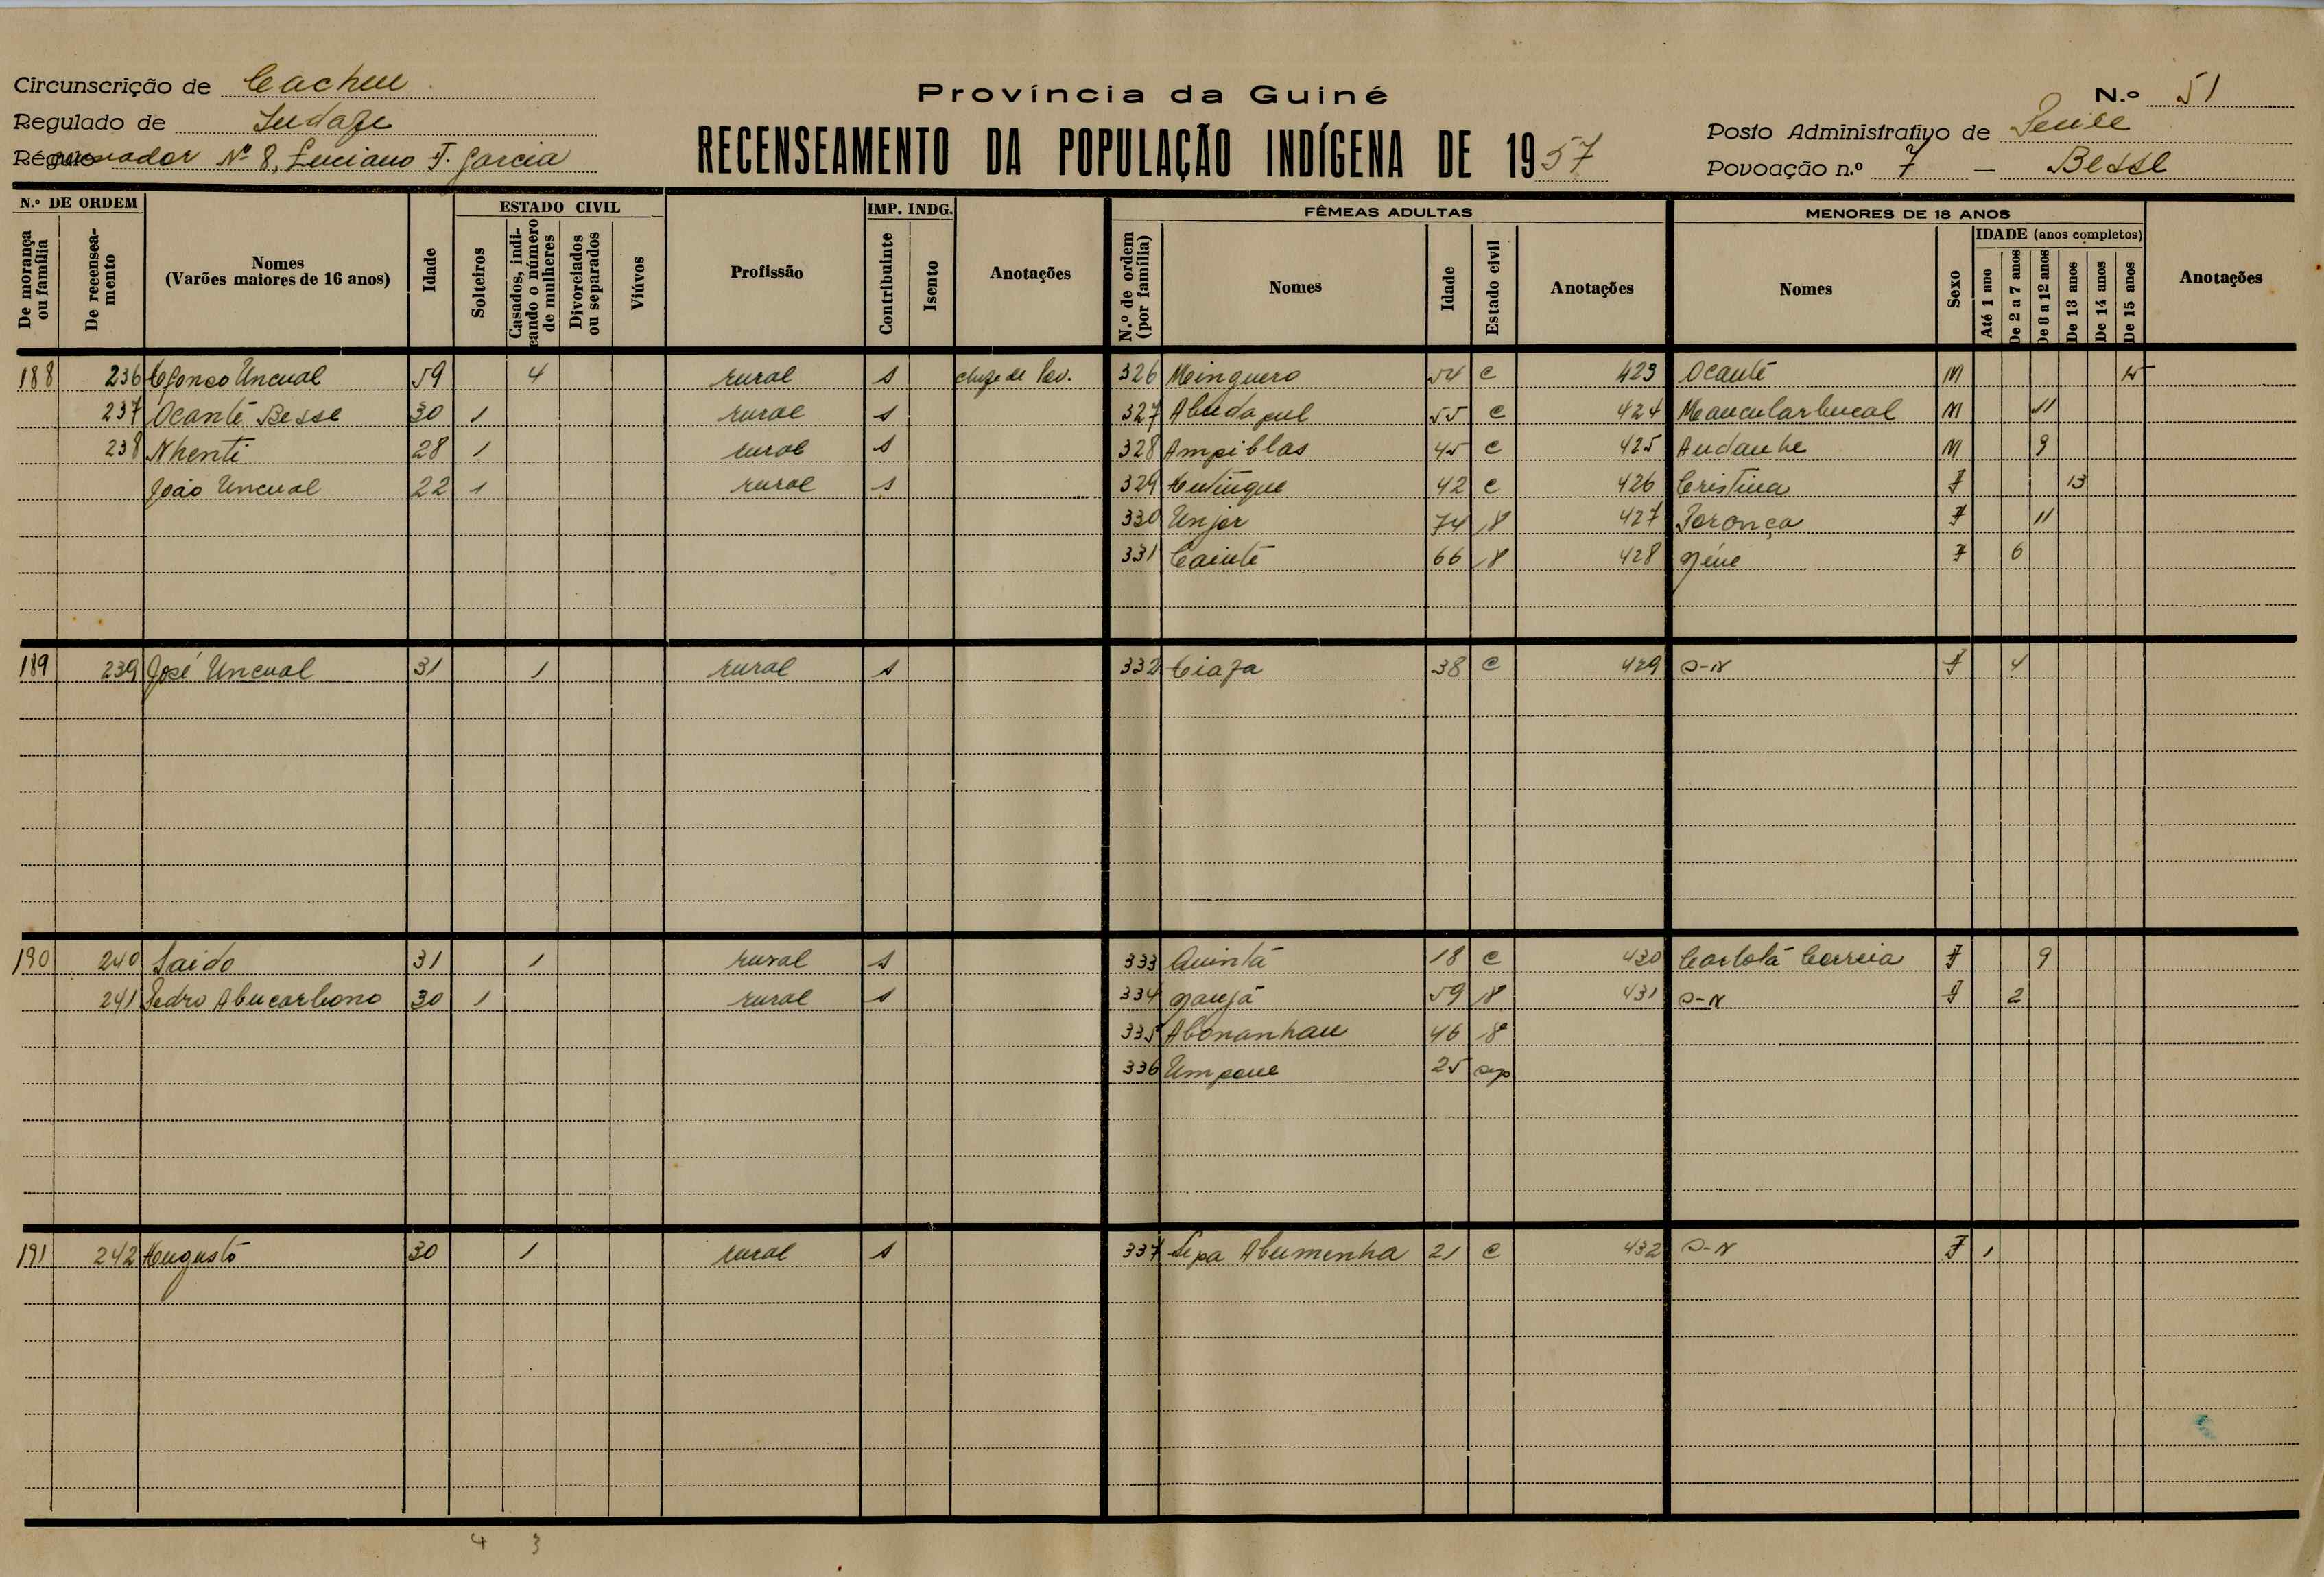 Circunscrição de Cacheu
Província da Guiné
N.º 51
Regulado de
RECENSEAMENTO DA POPULAÇÃO INDÍGENA DE 1957
Posto Administrativo de
Régulo Nº 8, Luciano F. Garcia
Povoação n.º 7 — Besse
N.º DE ORDEM
De morança ou família
De recenseamento
Nomes (Varões maiores de 16 anos)
Idade
ESTADO CIVIL
Solteiros
Casados, indicando o número de mulheres
Divorciados ou separados
Viúvos
Profissão
IMP. INDG.
Contribuinte
Isento
Anotações
FÊMEAS ADULTAS
N.º de ordem (por família)
Nomes
Idade
Estado civil
Anotações
MENORES DE 18 ANOS
Nomes
Sexo
IDADE (anos completos)
Até 1 ano
De 2 a 7 anos
De 8 a 12 anos
De 13 anos
De 14 anos
De 15 anos
Anotações
188 236 Uncual 59 4 rural s chefe de Pov. 326 Meinguero 54 c 423 Ocanté M 15
237 Ocanté Besse 30 1 rural s 327 Abudapul 55 c 424 M 11
238 Nhenti 28 1 rural s 328 Ampiblas 45 c 425 Audanhe M 9
João Uncual 22 1 rural s 329 42 c 426 Cristina F 13
330 Unjar 74 427 F 11
331 66 428 F 6
189 239 José Uncual 31 1 rural s 332 38 c 429 S-N F 4
190 240 Saido 31 1 rural s 333 Quintá 18 c 430 Carlotá Correia F 9
241 Pedro Abucarbono 30 1 rural s 334 59 431 S-N F 2
335 Abonanhau 46
336 Umpane 25 sep
191 242 Augustó 30 1 rural s 337 Sepa Abumenha 21 c 432 S-N F 1
4 3